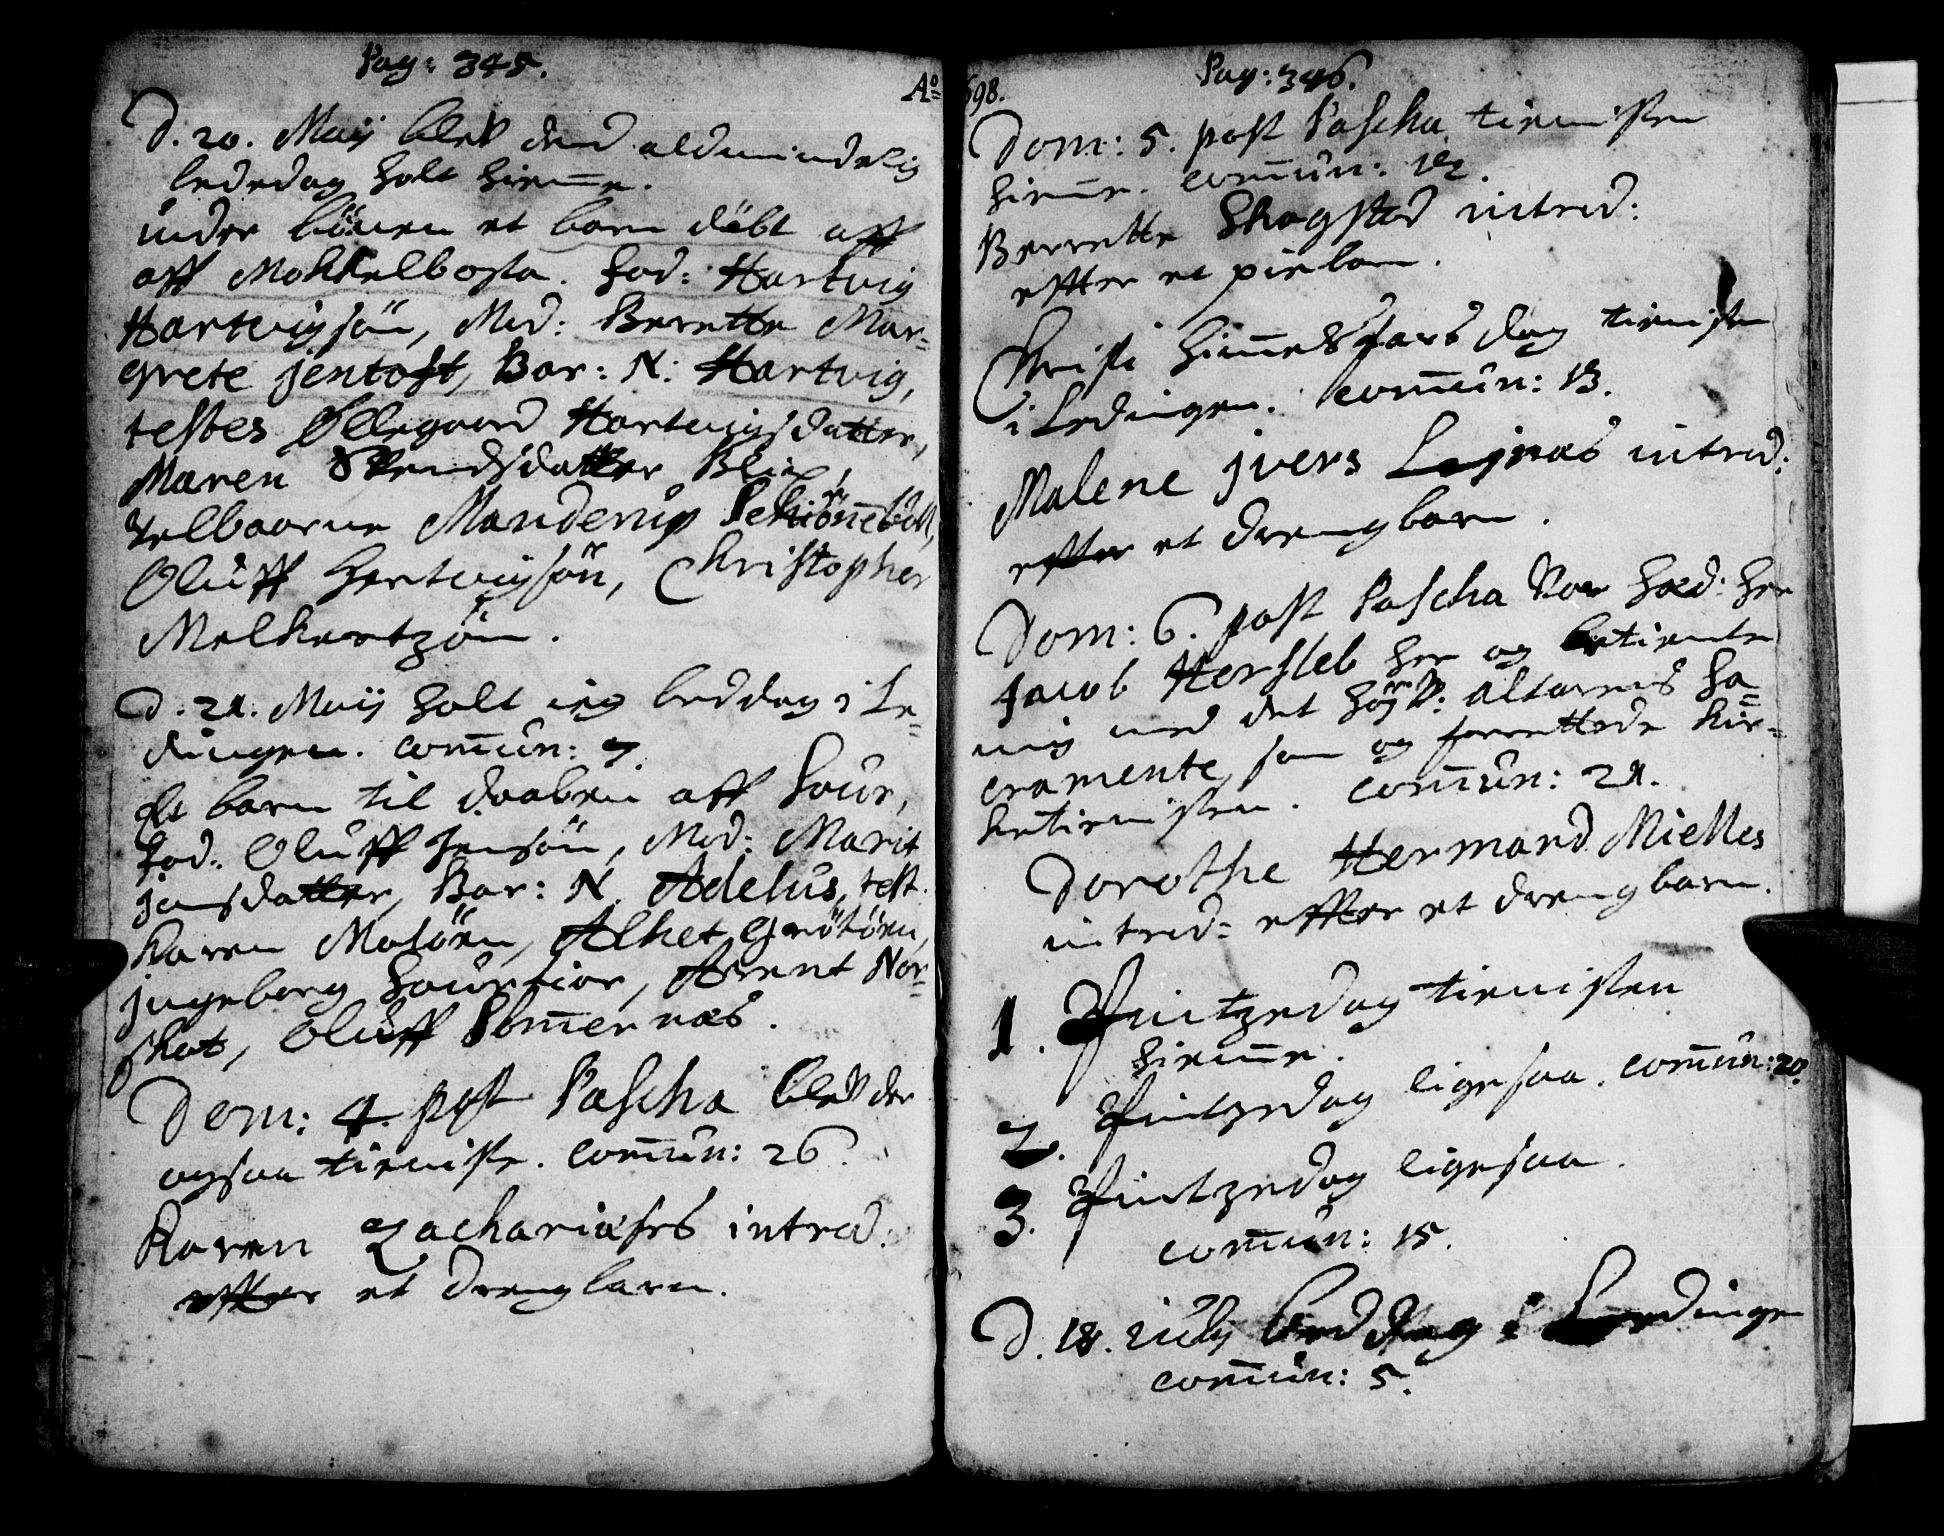 Pag: 345.
D. 20. Maij blef dend aldmindelig
bededag holt hieme.
under bönen et barn döbt aff
aff Mokkelbosta. Fad: Hartvig
Hartvigsön, Mod: Berette Mar-
grete jentoft, Bar: N: Hartvig,
testes Øllegaard Hartvigsdatter,
Maren Svendsdatter Blix,
velbaarne Manderup Schönneböll,
Oluff Hertvigsön, Christopher
Melkertzön.
D. 21. Maij holt ieg beddag i Lo-
dingen. comun: 7.
Et barn til daaben aff
Fad: Oluff Jensön, Mod: Marit
jensdatter, Bar: N. Adelus, test.
Karen Molöen, Alhet Grötöen,
jngeborg, Arent Nor-
skot, Oluff Somernæs.
Dom: 4. post Pascha blef der
ogsaa tieniste. comun: 26.
Karen Zachariæses introd.
effter et drengbarn.
Ao 698.
Pag: 346.
Dom: 5. post Pascha tienisten
hieme. comun: 12.
Berrette Skogstad introd:
effter et piebarn.
Christi himmelsfars dag tienisten
i Lodingen. comun: 13.
Malene jvers introd:
effter et drengbarn.
Dom: 6. post Pascha var hæd: her
Jacob Hersleb her og betiente
mig med det höyv: altarens Sa-
cramente, som og forrettede kir-
ketienisten. comun: 21.
Dorothe Hermand Mickels
introd: effter et drengbarn.
1. Pintzedag tienisten
hieme.
2. Pintzedag ligesaa. comun: 20.
3. Pintzedag ligesaa.
comun: 15.
D. 18. beddag i Lodingen
comun: 5.